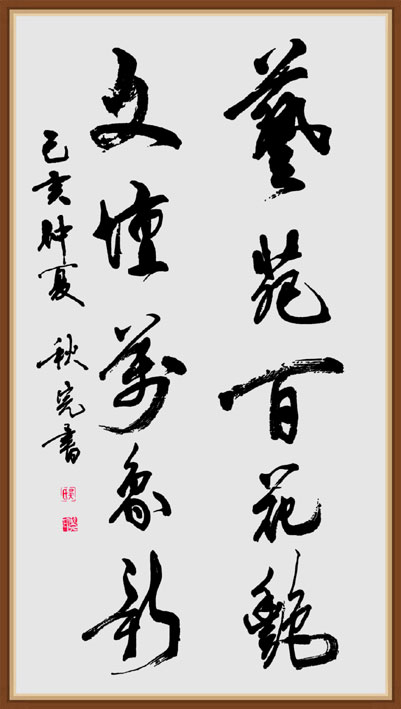 藝苑百花艶
文壇萬象新
己亥仲夏 秋完書